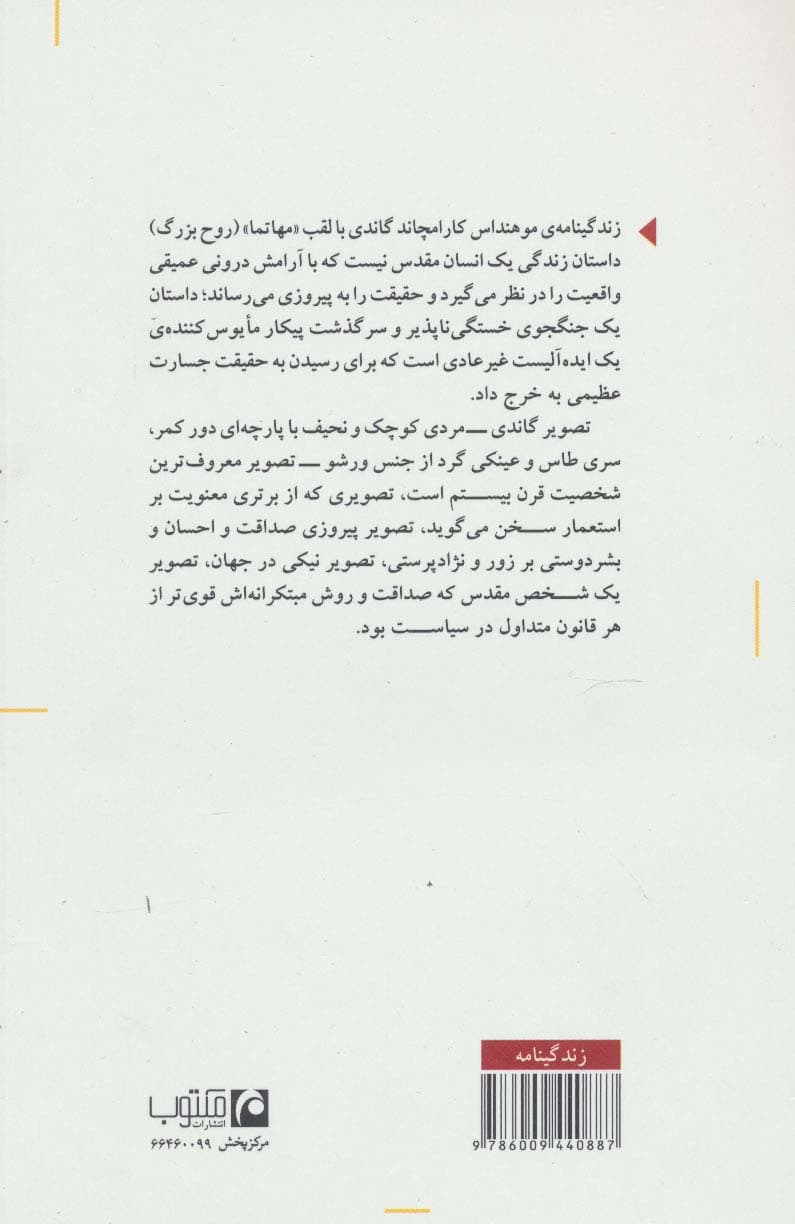 زندگینامه‌ی موهنداس کارامچاند گاندی با لقب «مهاتما» (روح بزرگ)
داستان زندگی یک انسان مقدس نیست که با آرامش درونی عمیقی
واقعیت را در نظر می‌گیرد و حقیقت را به پیروزی می‌رساند؛ داستان
یک جنگجوی خستگی‌ناپذیر و سرگذشت پیکار مأیوس‌کننده‌ی
یک ایده‌آلیست غیرعادی است که برای رسیدن به حقیقت جسارت
عظیمی به خرج داد.
تصویر گاندی ـ مردی کوچک و نحیف با پارچه‌ای دور کمر،
سری طاس و عینکی گرد از جنس ورشو ـ تصویر معروف‌ترین
شخصیت قرن بیستم است، تصویری که از برتری معنویت بر
استعمار سخن می‌گوید، تصویر پیروزی صداقت و احسان و
بشردوستی بر زور و نژادپرستی، تصویر نیکی در جهان، تصویر
یک شخص مقدس که صداقت و روش مبتکرانه‌اش قوی‌تر از
هر قانون متداول در سیاست بود.
زندگینامه
9 786009 440887
مکتوب
انتشارات
مرکزپخش ۶۶۴۶۰۰۹۹